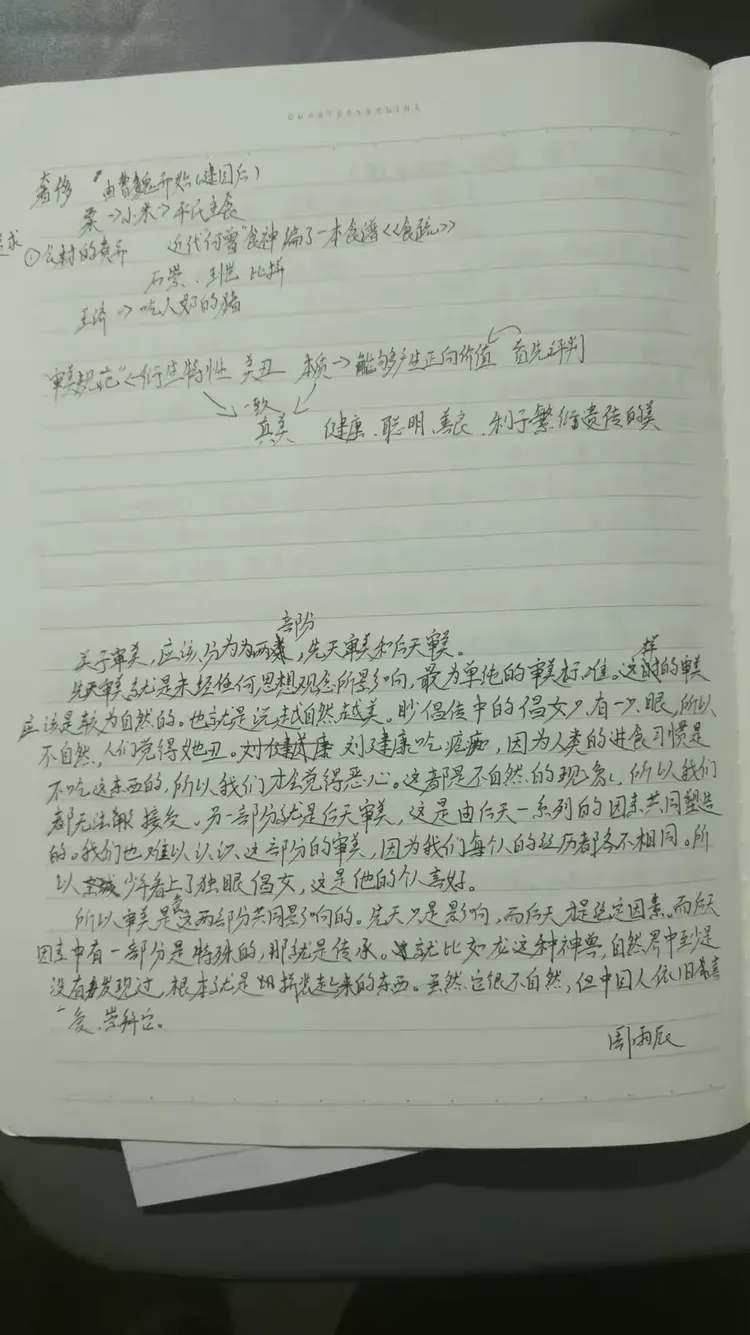 奢侈 由曹魏开始(建国后)
粟→小米→平民主食
追求
①食材的贵异 近代何曾"食神"编了一本食谱《食疏》
石崇、王恺 比拼
王济→吃人奶的猪
"审美规范"←衍生特性 美丑 本质→能够产生正向价值 首先评判
一致
真美 健康、聪明、善良、利于繁衍遗传的美
部份
关于审美,应该分为为两,先天审美和后天审美。
样
先天审美就是未经任何思想观念所影响,最为单纯的审美标准。这的审美
应该是较为自然的。也就是说越自然越美。眇倡传中的倡女只有一只眼,所以
不自然,人们觉得她丑。刘健康吃疮痂,因为人类的进食习惯是
不吃这东西的,所以我们才会觉得恶心。这都是不自然的现象,所以我们
都无法接受。另一部分就是后天审美,这是由后天一系列的因素共同塑造
的。我们也难以认识这部分的审美,因为我们每个人的经历都各不相同。所
以少年看上了独眼倡女,这是他的个人喜好。
所以审美是这两部分共同影响的。先天只是影响,而后天才是决定因素。而后天
因素中有一部分是特殊的,那就是传承。就比如龙这种神兽,自然界中至少是
没有发现过,根本就是拼装起来的东西。虽然它很不自然,但中国人依旧喜
爱、崇拜它。
周雨辰